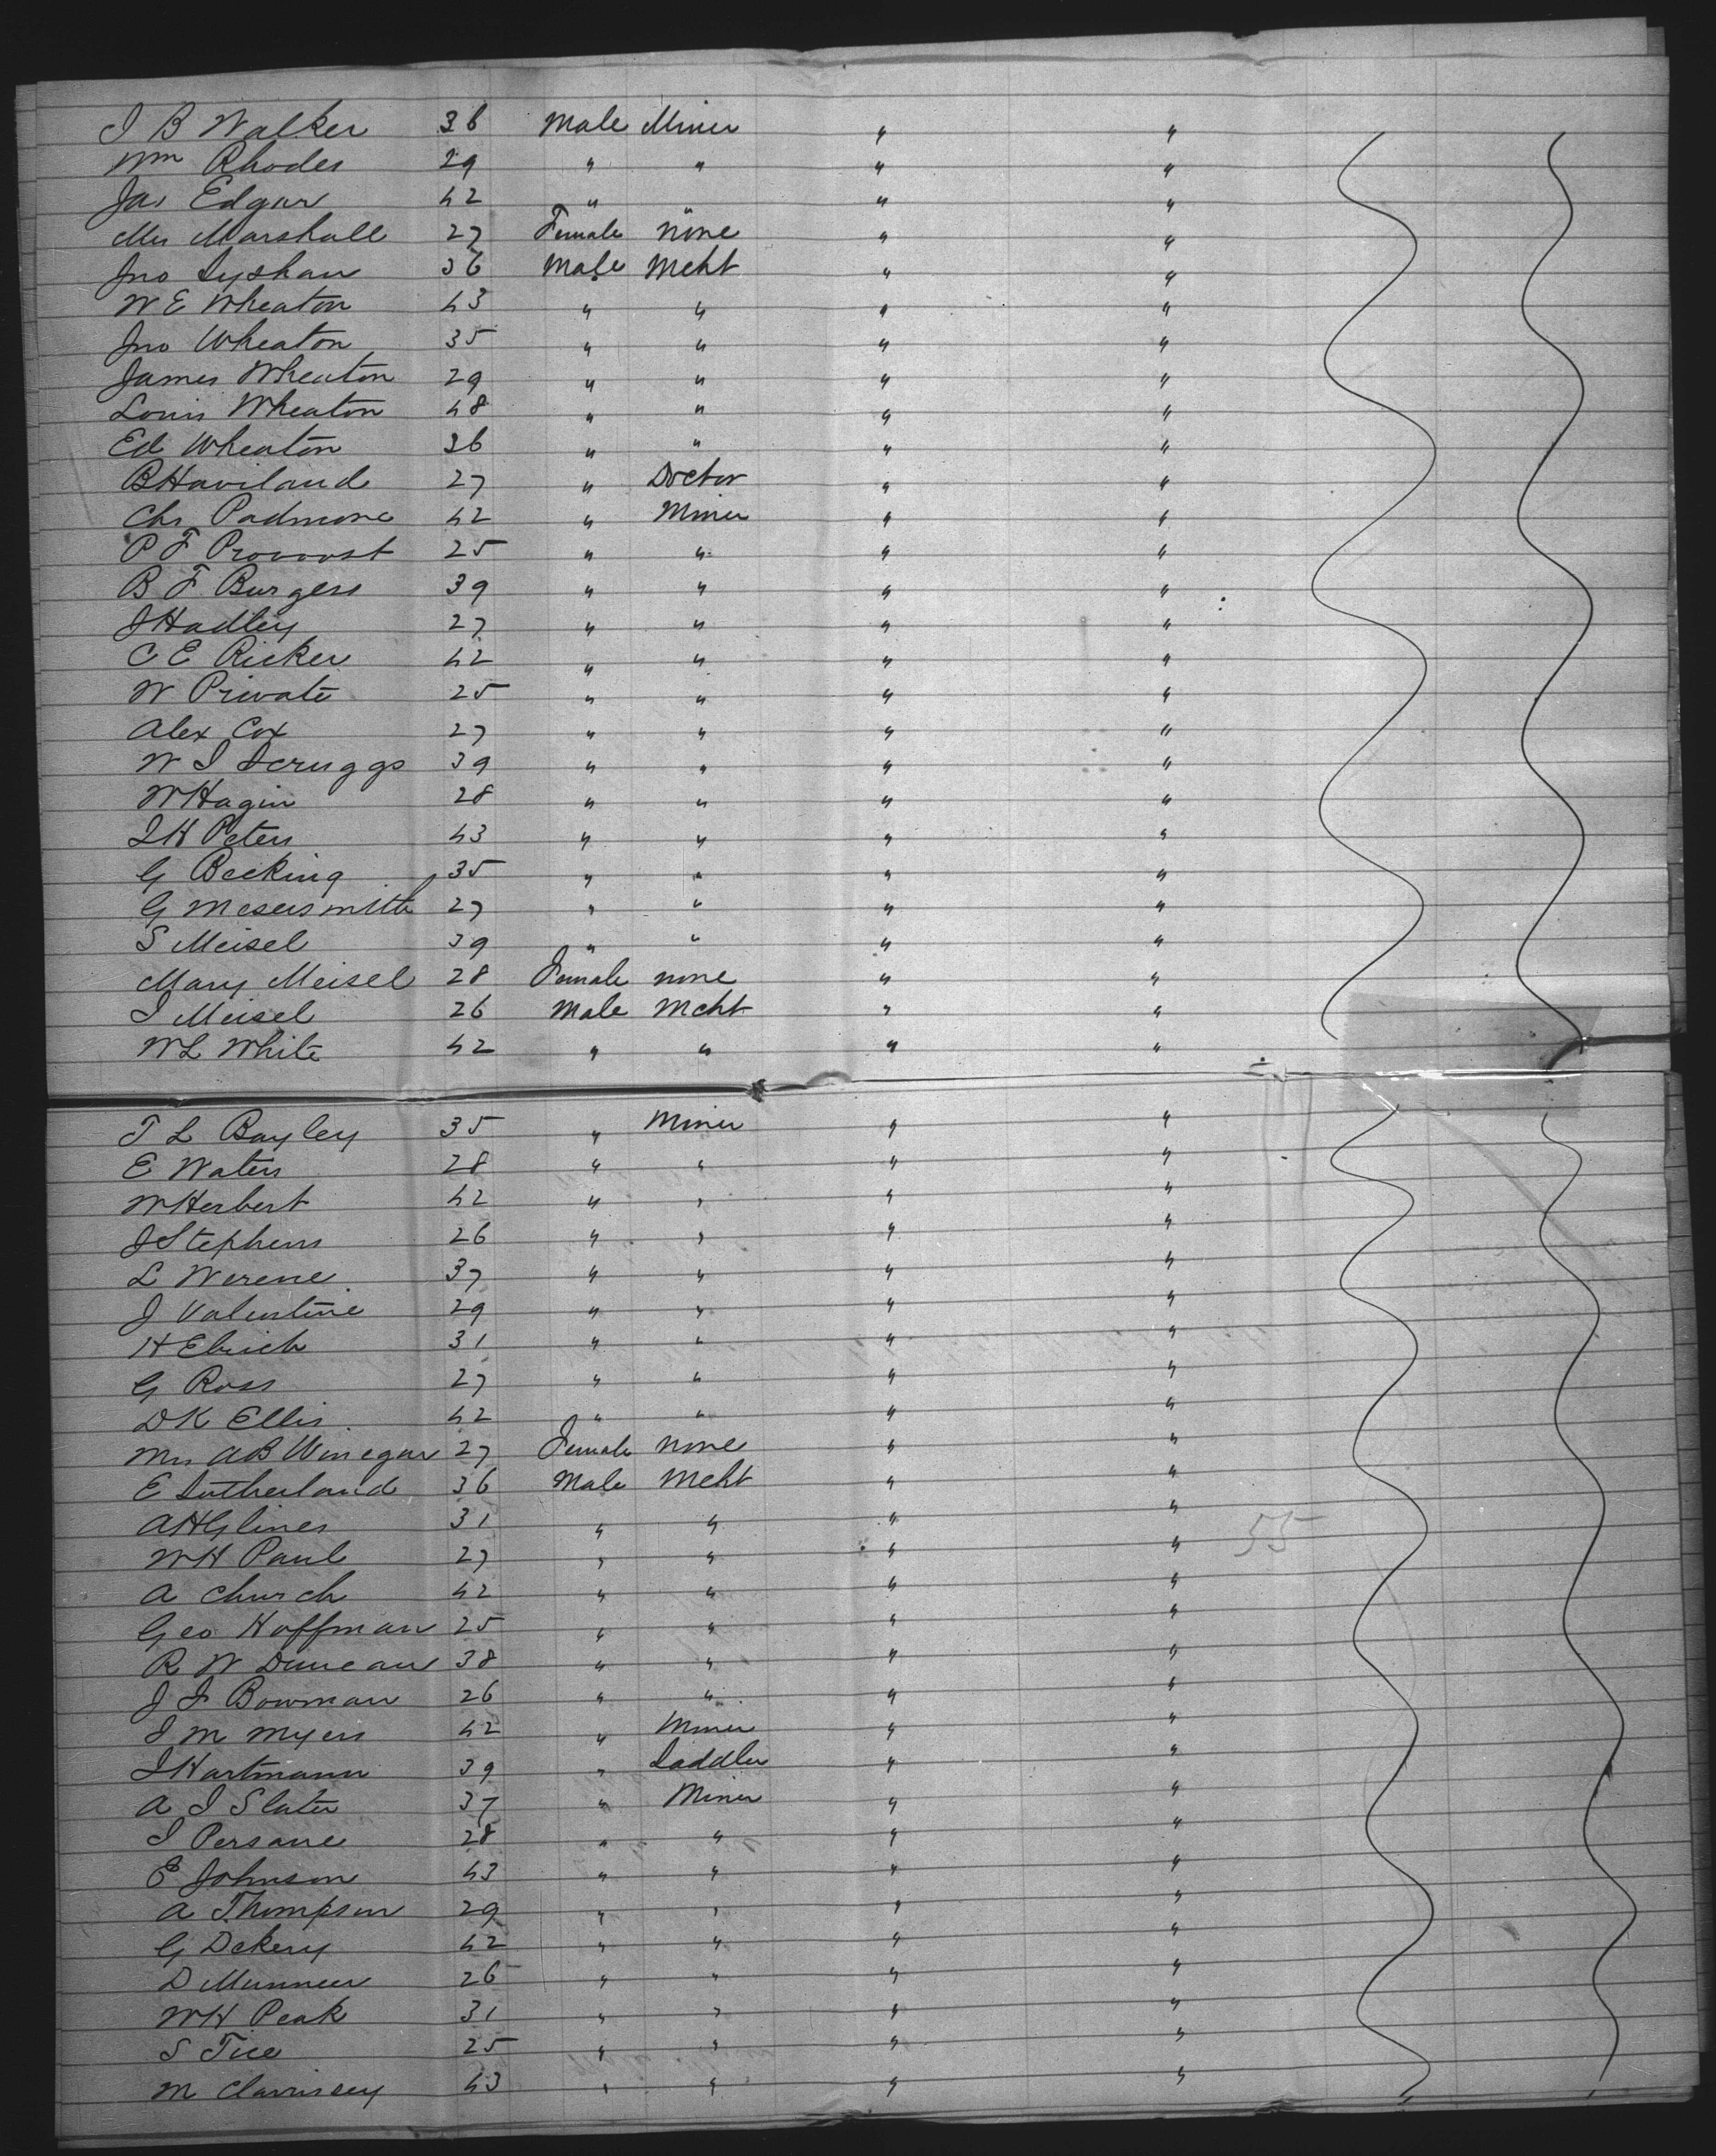 J B Walker 36 Male Miner " "
Wm Rhodes 29 " " " "
Jas Edgar 42 " " "
Mrs Marshall 27 Female none " "
Jno 36 Male Mcht " "
W E Wheaton 43 " " " "
Jno Wheaton 35 " " " "
James Wheaton 29 " " " "
Louis Wheaton 48 " " " "
Ed Wheaton 36 " " " "
B Haviland 27 " Doctor " "
Chs Padmore 42 " Miner " "
P F Provost 25 " " " "
B F Burgess 39 " " " "
J Hadley 27 " " " "
C E Ricker 42 " " " "
W Private 25 " " " "
Alex Cox 27 " " " "
W S Scruggs 39 " " " "
W Hagin 28 " " " "
J H Peters 43 " " " "
G Becking 35 " " " "
G Mesersmith 27 " " " "
S Meisel 39 " " " "
Mary Meisel 28 Female none " "
I Meisel 26 Male Mcht " "
W L White 42 " " " "
T L Bayley 35 " Miner " "
E Waters 28 " " " "
W Herbert 42 " " " "
J Stephens 26 " " " "
L Werene 37 " " " "
J Valentine 29 " " " "
H 31 " " " "
G Ross 27 " " " "
D K Ellis 42 " " " "
Mrs A B Winegar 27 Female none " "
E Sutherland 36 Male Mcht " "
A H Glines 31 " " " "
W H Paul 27 " " " "
A Church 42 " " " "
Geo Hoffman 25 " " " "
R W Duncan 38 " " " "
J F Bowman 26 " " " "
J M Myers 42 " Miner " "
J Hartmann 39 " Saddler " "
A J Slater 37 " Miner " "
J Persane 28 " " " "
E Johnson 43 " " " "
A Thompson 29 " " " "
G Dekery 42 " " " "
D 26 " " " "
W H Peak 31 " " " "
S Tice 25 " " " "
M 43 " " " "
55